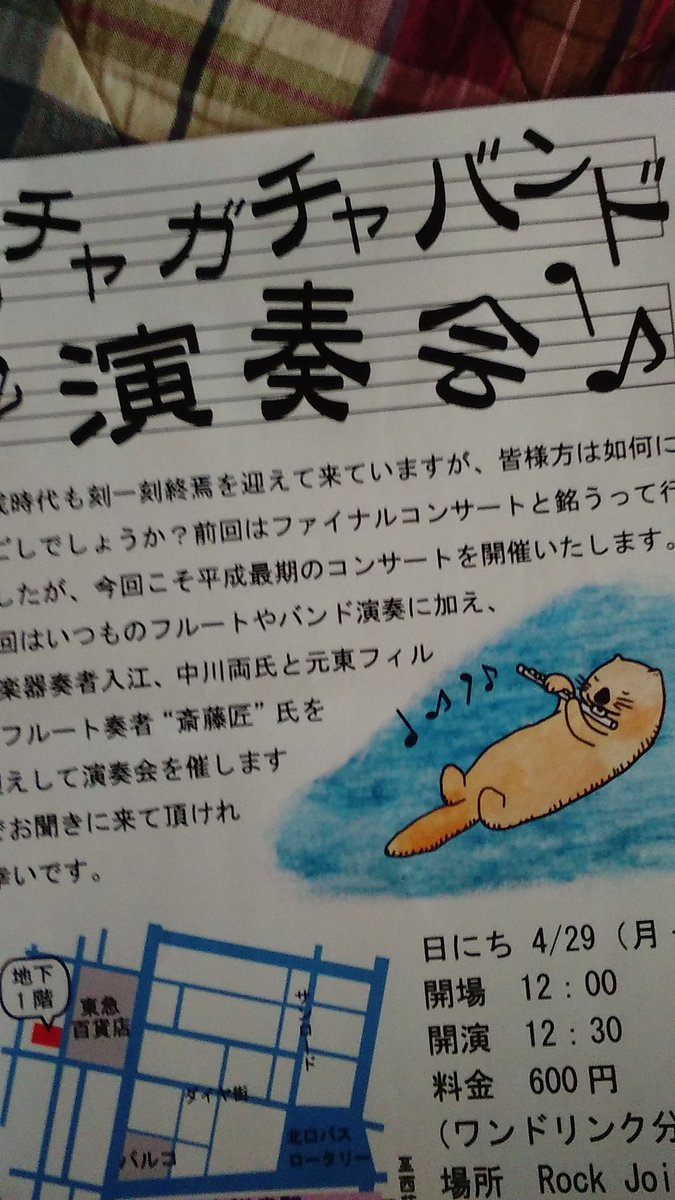 チャガチャバンド
演奏会
時代も刻一刻終焉を迎えて来ていますが、皆様方は如何に
ごしでしょうか？前回はファイナルコンサートと銘うって行
したが、今回こそ平成最期のコンサートを開催いたします。
回はいつものフルートやバンド演奏に加え、
楽器奏者入江、中川両氏と元東フィル
フルート奏者“斎藤匠”氏を
えして演奏会を催します
でお聞きに来て頂けれ
幸いです。
地下
1階
東急
百貨店
サンロード
ダイヤ街
パルコ
北口バス
ロータリー
日にち 4/29（月・
開場 12：00
開演 12：30
料金 600円
（ワンドリンク分
場所 Rock Joi